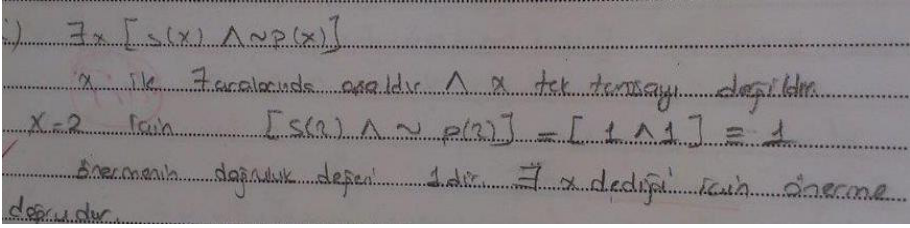 :) ∃x [s(x) ∧ ~p(x)]
x ile 7 aralarında asaldır ∧ x tek tamsayı değildir.
x=2 için [s(2) ∧ ~ p(2)] = [1 ∧ 1] = 1
önermenin doğruluk değeri 1 dir. ∃ x dediği için önerme
doğrudur.